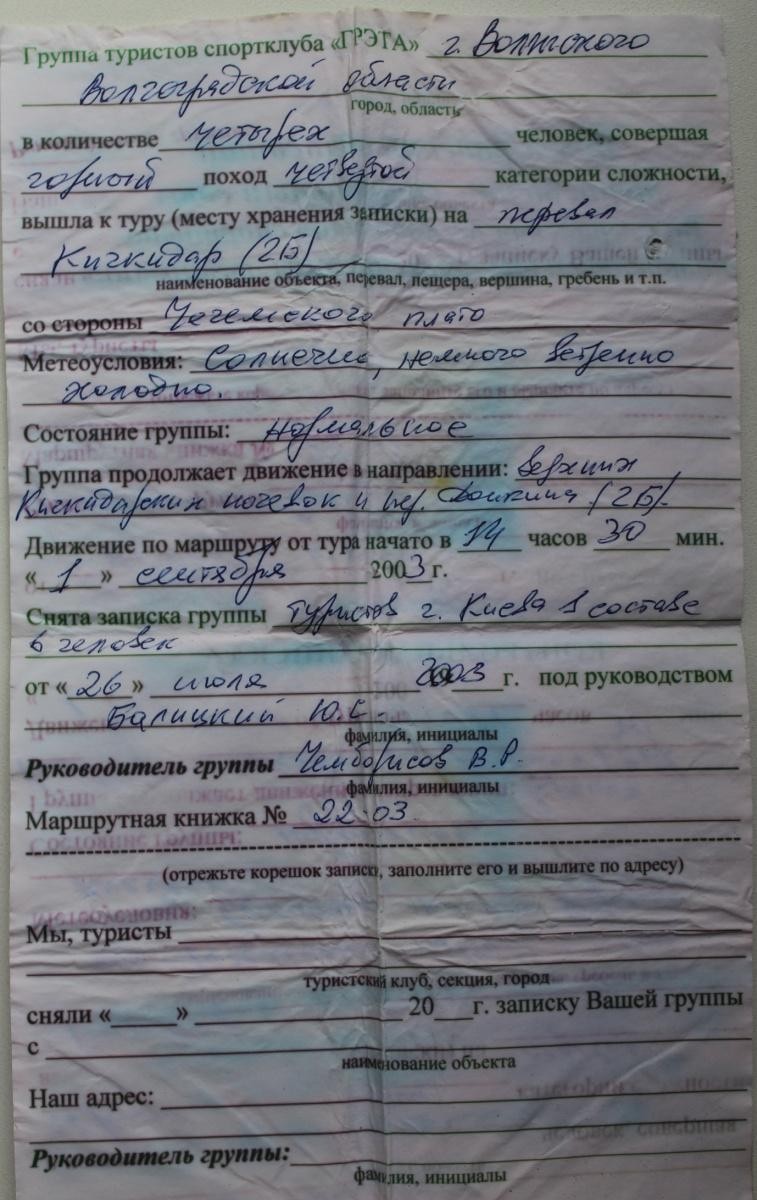 Группа туристов спортклуба «ГРЭГА» г. Волжского
Волгоградской области
город, область
в количестве четырех человек, совершая
горный поход четвертой категории сложности,
вышла к туру (месту хранения записки) на перевал
Кичкидар (2Б)
наименование объекта, перевал, пещера, вершина, гребень и т.п.
со стороны Чегемского плато
Метеоусловия: Солнечно, немного ветренно
холодно.
Состояние группы: нормальное
Группа продолжает движение в направлении: верхних
Кичкидарских ночевок и пер. (2Б).
Движение по маршруту от тура начато в 14 часов 30 мин.
« 1 » сентября 2003 г.
Снята записка группы туристов г. Киева в составе
6 человек
от « 26 » июля 2003 г. под руководством
Балицкий Ю.С.
фамилия, инициалы
Руководитель группы Чемборисов В.Р.
фамилия, инициалы
Маршрутная книжка № 22-03
(отрежьте корешок записки, заполните его и вышлите по адресу)
Мы, туристы
туристский клуб, секция, город
сняли «_____» 20___г. записку Вашей группы
с
наименование объекта
Наш адрес:
Руководитель группы:
фамилия, инициалы